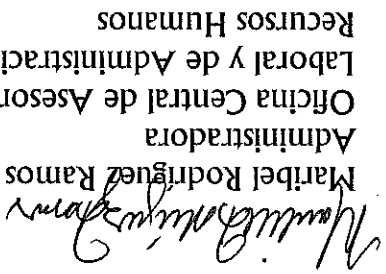 Maribel Rodríguez Ramos
Administradora
Oficina Central de Asesor
Laboral y de Administraci
Recursos Humanos